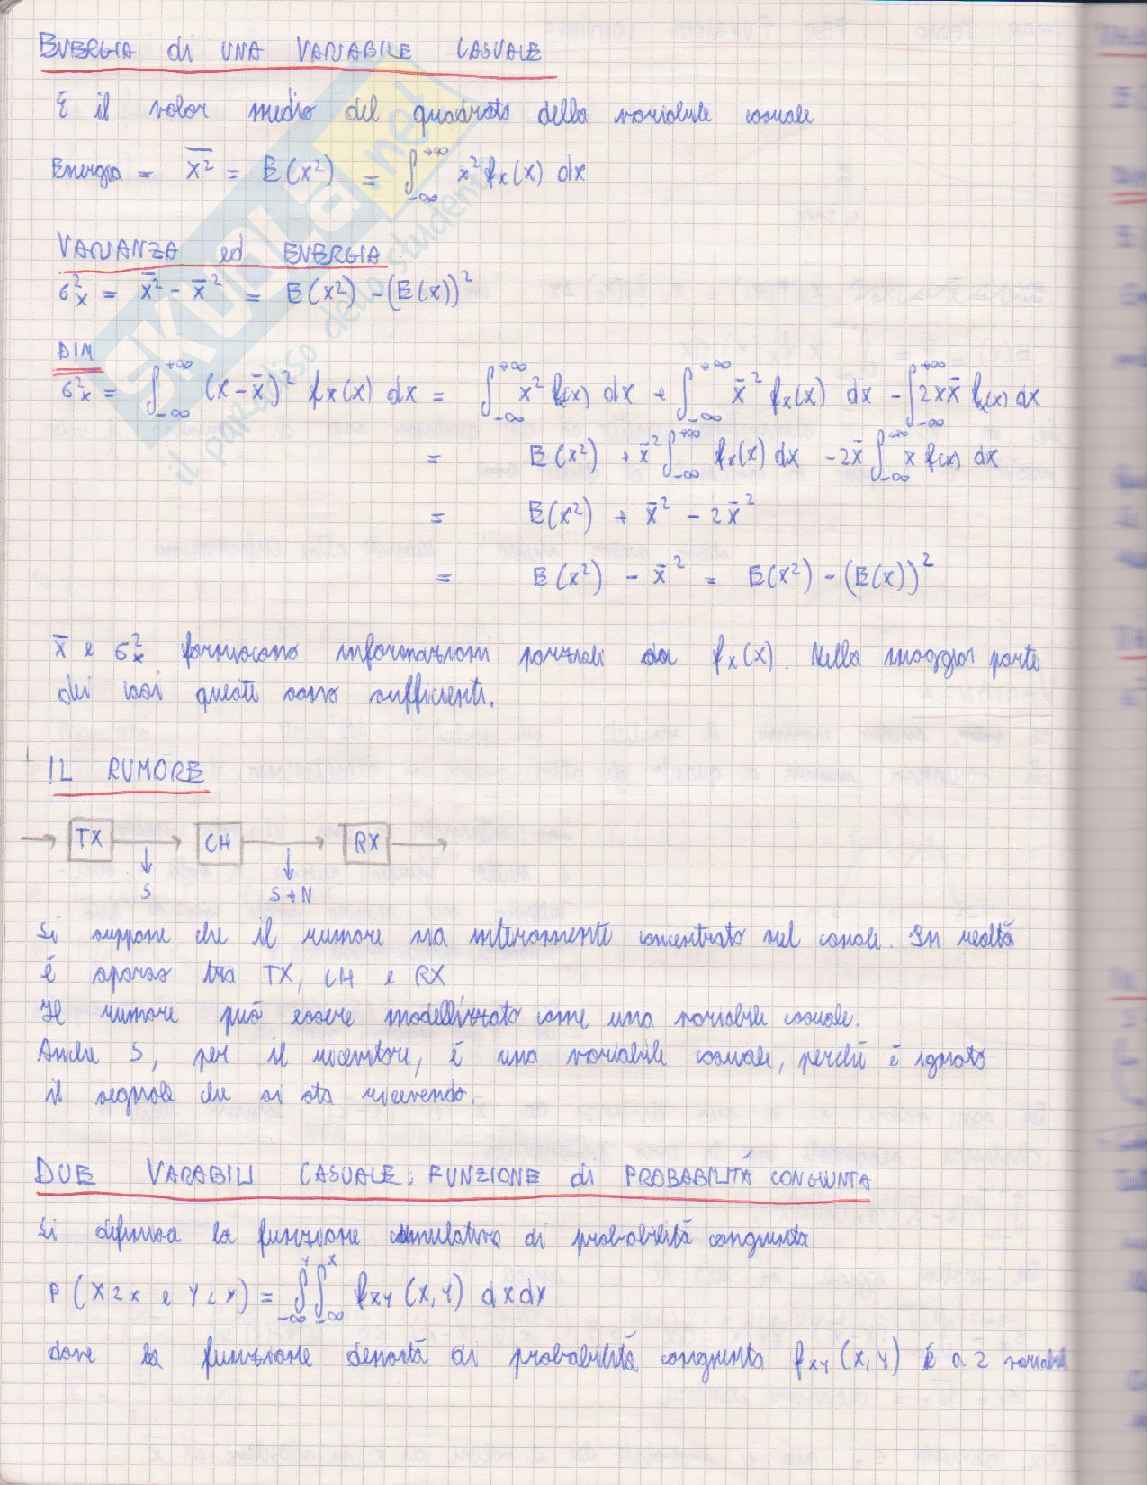 ENERGIA di UNA VARIABILE CASUALE
È il valor medio del quadrato della variabile casuale
Energia = \overline{x^2} = E(x²) = ∫_{-∞}^{+∞} x² f_x(x) dx
VARIANZA ed ENERGIA
σ²_x = \overline{x^2} - x̄² = E(x²) - (E(x))²
DIM
σ²_x = ∫_{-∞}^{+∞} (x-x̄)² f_x(x) dx = ∫_{-∞}^{+∞} x² f_x(x) dx + ∫_{-∞}^{+∞} x̄² f_x(x) dx - ∫_{-∞}^{+∞} 2xx̄ f_x(x) dx
= E(x²) + x̄² ∫_{-∞}^{+∞} f_x(x) dx - 2x̄ ∫_{-∞}^{+∞} x f(x) dx
= E(x²) + x̄² - 2x̄²
= E(x²) - x̄² = E(x²) - (E(x))²
x̄ e σ²_x forniscono informazioni parziali da f_x(x). Nella maggior parte
dei casi queste sono sufficienti.
IL RUMORE
TX CH RX
S S+N
Si suppone che il rumore sia interamente concentrato nel canale. In realtà
è sparso tra TX, CH e RX
Il rumore può essere modellizzato come una variabile casuale.
Anche S, per il ricevitore, è una variabile casuale, perché è ignoto
il segnale che si sta ricevendo.
DUE VARABILI CASUALE: FUNZIONE di PROBABILITÀ CONGIUNTA
Si definisca la funzione cumulativa di probabilità congiunta
P (X≤x e Y≤y) = ∫_{-∞}^{y} ∫_{-∞}^{x} f_{xy} (x,y) dxdx
dove la funzione densità di probabilità congiunta f_{xy} (x,y) è a 2 variabili
SKUOLA.net
il paradiso dello studente